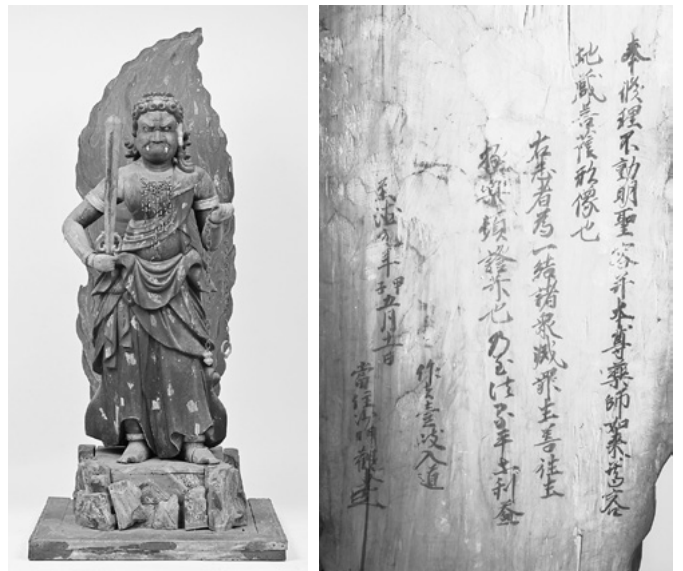 奉修理不動明聖容并本尊薬師如来尊容
地蔵菩薩形像也
右志者為一結諸衆滅罪生善往生
極楽頓證并也乃至法界平等利益
至徳元年甲子五月十一日
作者壹岐入道
當住